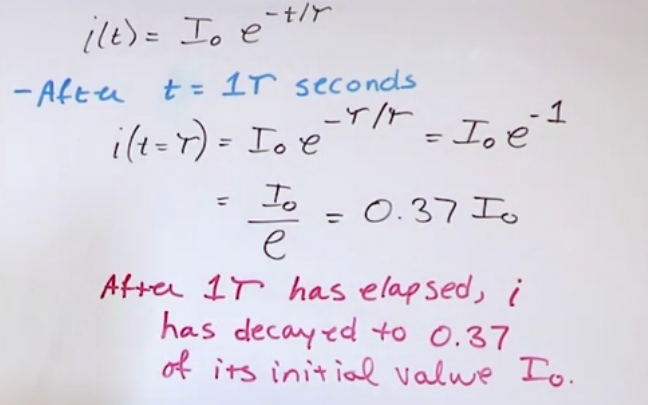 i(t) = I₀ e^(-t/τ)
- After t = 1τ seconds
i(t=τ) = I₀ e^(-τ/τ) = I₀ e^(-1)
= I₀/e = 0.37 I₀
After 1τ has elapsed, i
has decayed to 0.37
of its initial value I₀.